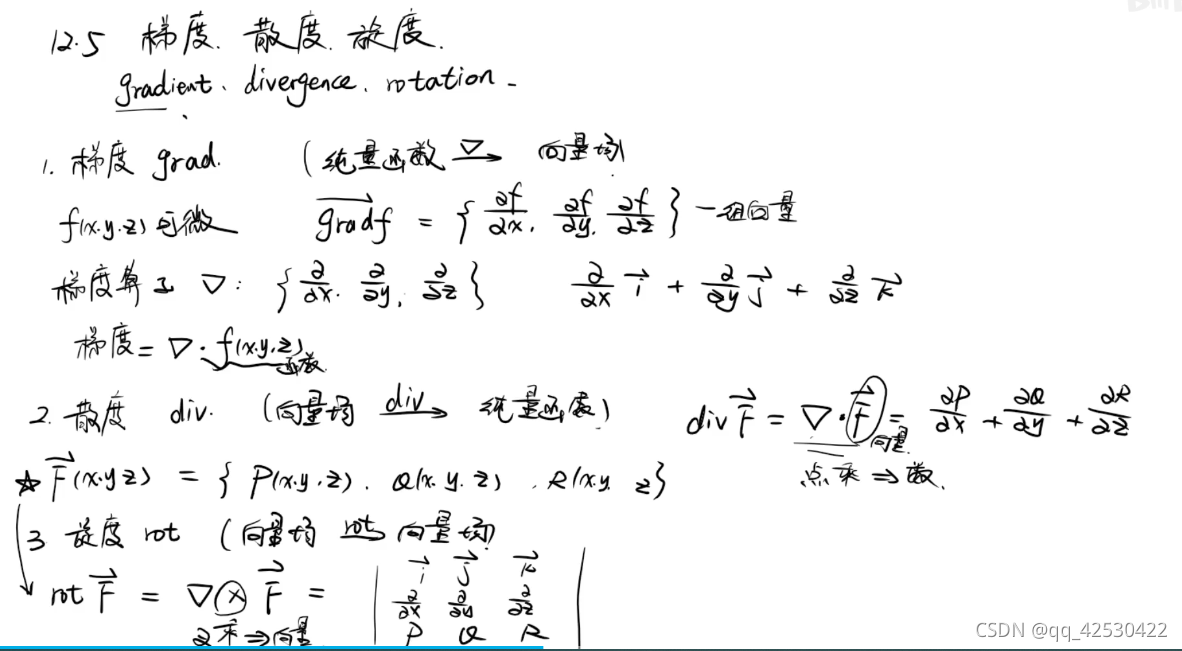 12.5 梯度. 散度. 旋度.
gradient. divergence. rotation
1. 梯度 grad. (纯量函数 ∇→ 向量场)
f(x.y.z) 可微 gradf = { ∂f/∂x, ∂f/∂y, ∂f/∂z } 一组向量
梯度算子 ∇: { ∂/∂x, ∂/∂y, ∂/∂z } ∂/∂x i + ∂/∂y j + ∂/∂z k
梯度 = ∇·f(x.y.z) 函数
2. 散度 div. (向量场 div→ 纯量函数) div F = ∇·F = ∂P/∂x + ∂Q/∂y + ∂R/∂z
向量
点乘 ⇒ 数.
☆ F(x.y z) = { P(x.y.z). Q(x.y.z). R(x.y. z) }
3 旋度 rot (向量场 rot→ 向量场)
rot F = ∇ × F = | i j k
∂/∂x ∂/∂y ∂/∂z
P Q R |
叉乘 ⇒ 向量
CSDN @qq_42530422